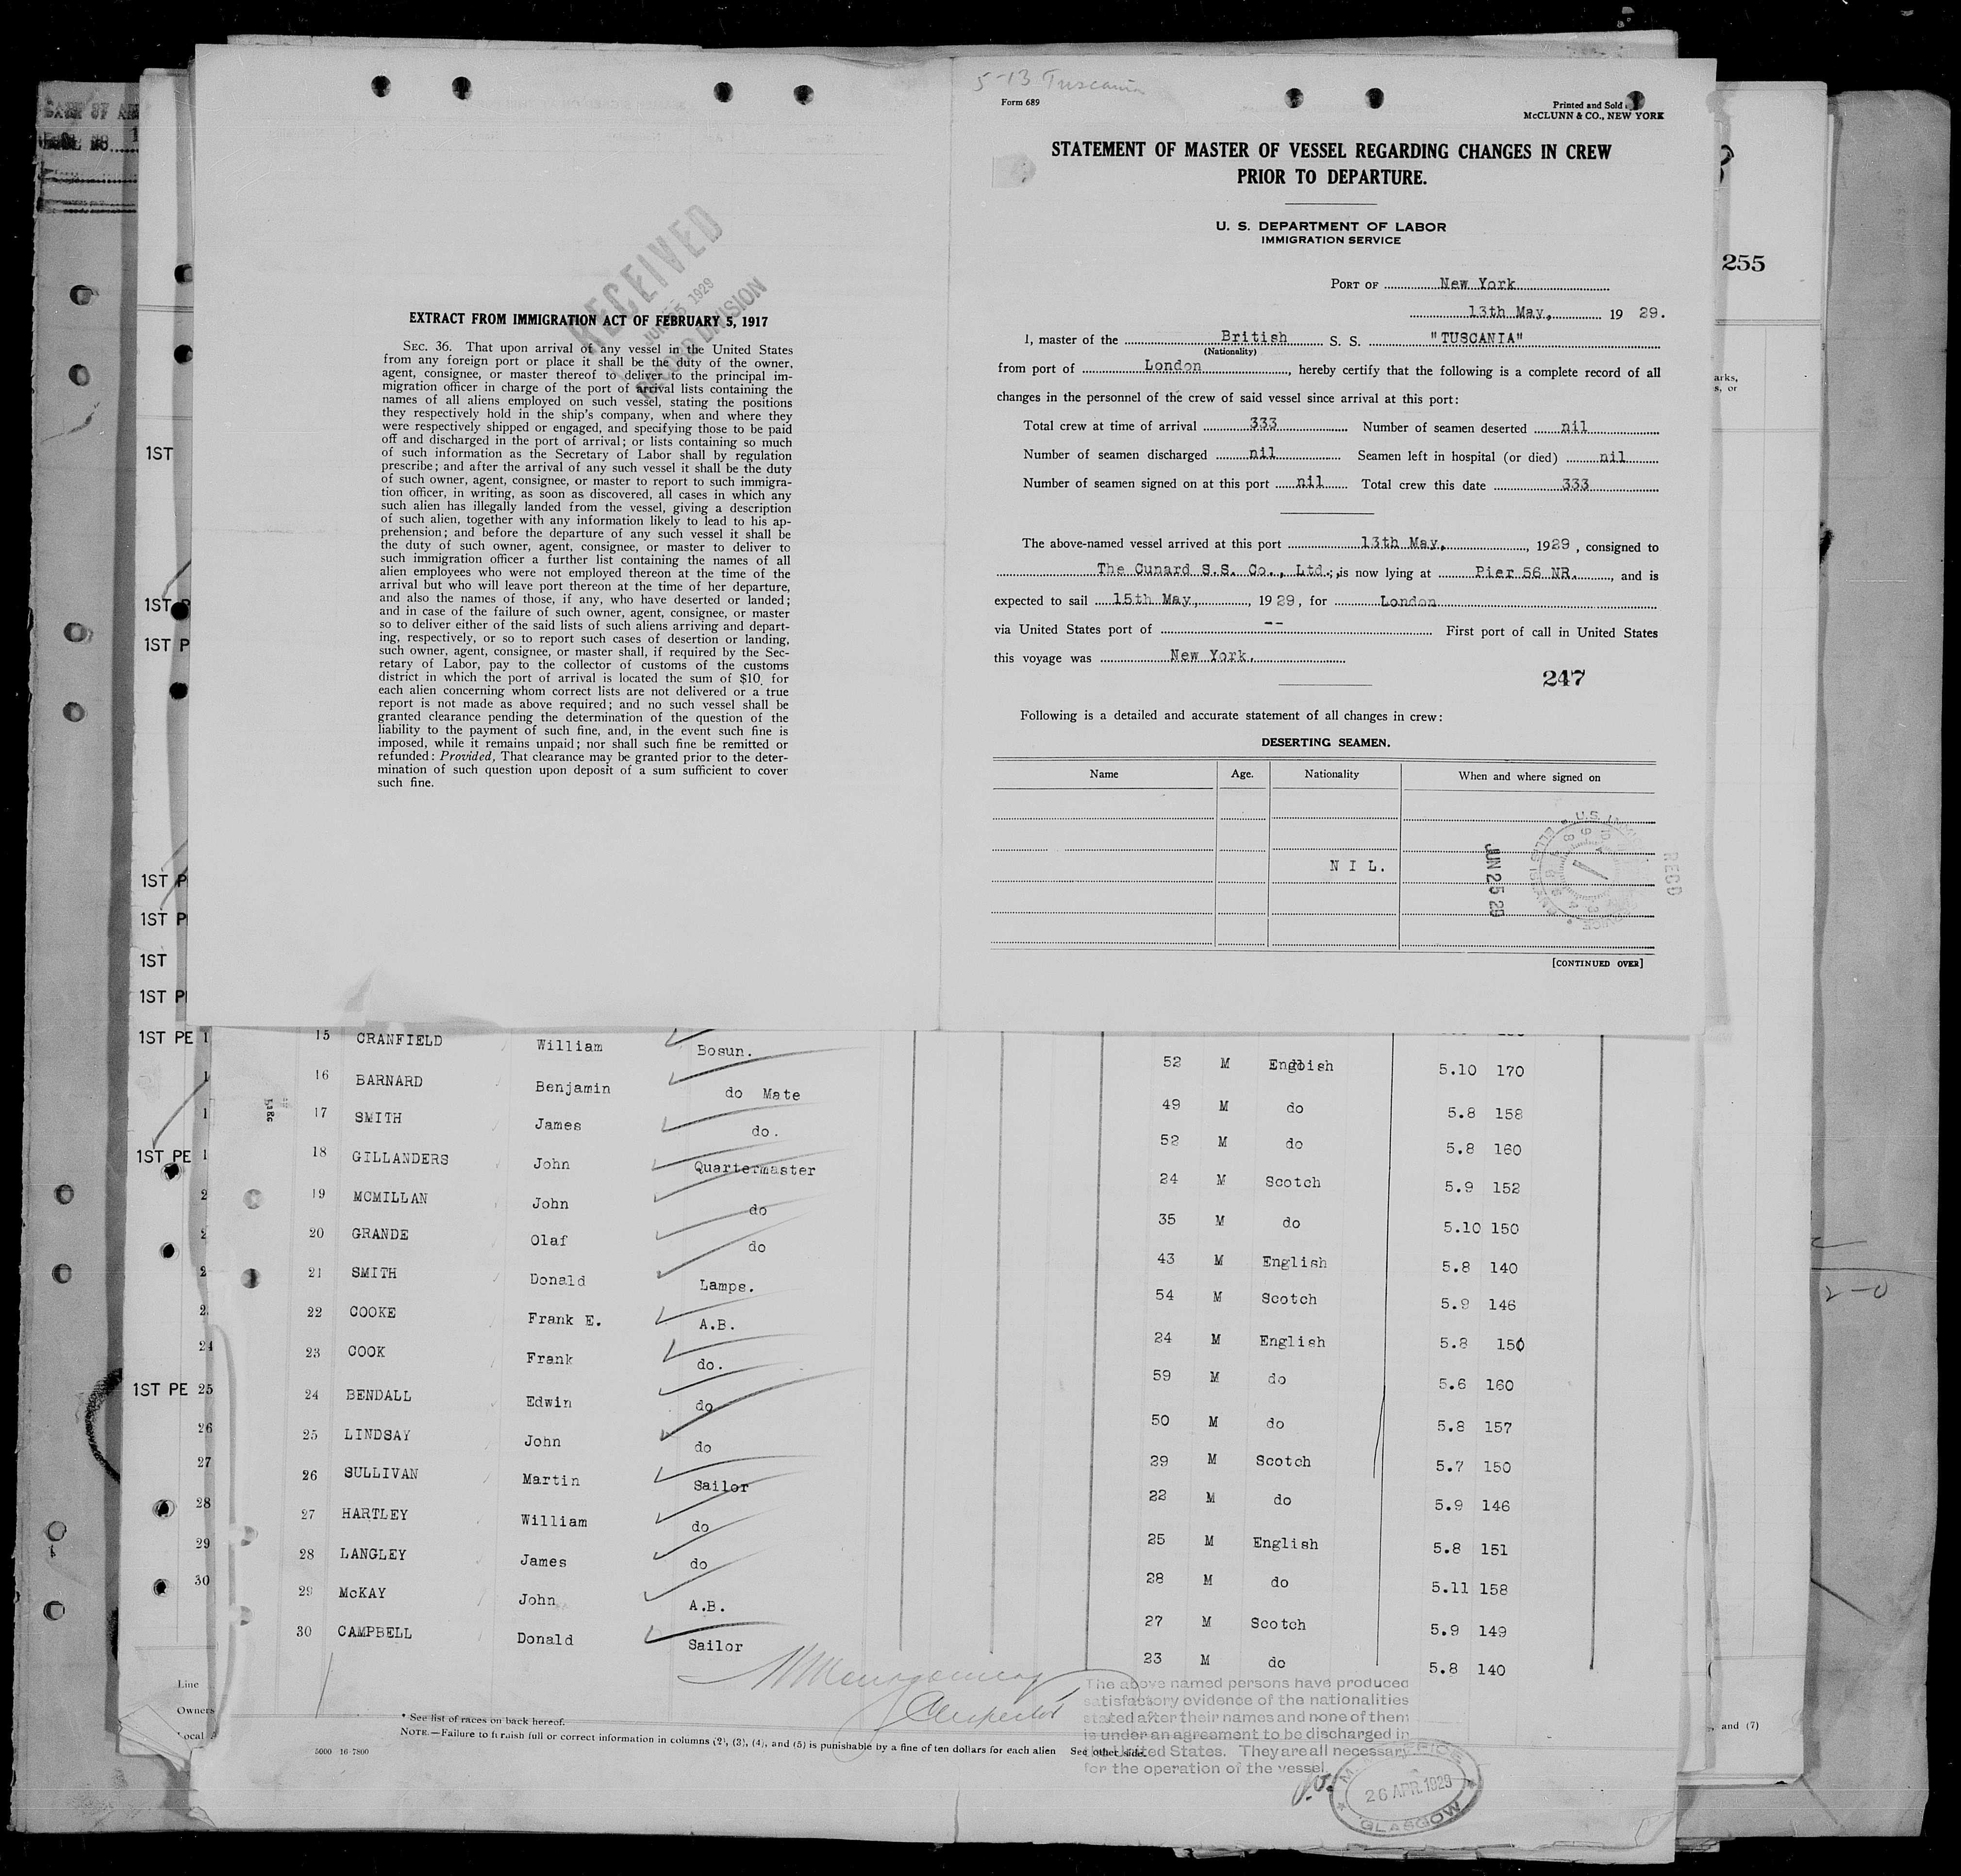 5-13 Tuscania
Form 689
Printed and Sold
McCLUNN & CO., NEW YORK
STATEMENT OF MASTER OF VESSEL REGARDING CHANGES IN CREW
PRIOR TO DEPARTURE.
U. S. DEPARTMENT OF LABOR
IMMIGRATION SERVICE
PORT OF New York
13th May, 19 29.
I, master of the British S. S. "TUSCANIA"
(Nationality)
from port of London, hereby certify that the following is a complete record of all
changes in the personnel of the crew of said vessel since arrival at this port:
Total crew at time of arrival 333 Number of seamen deserted nil
Number of seamen discharged nil Seamen left in hospital (or died) nil
Number of seamen signed on at this port nil Total crew this date 333
The above-named vessel arrived at this port 13th May, 1929, consigned to
The Cunard S.S. Co., Ltd.; is now lying at Pier 56 NR., and is
expected to sail 15th May, 1929, for London
via United States port of -- First port of call in United States
this voyage was New York.
247
Following is a detailed and accurate statement of all changes in crew:
DESERTING SEAMEN.
Name Age. Nationality When and where signed on
N I L.
JUN 25 29
RECD
[CONTINUED OVER]
RECEIVED
JUN 25 1929
RECORD DIVISION
EXTRACT FROM IMMIGRATION ACT OF FEBRUARY 5, 1917
SEC. 36. That upon arrival of any vessel in the United States
from any foreign port or place it shall be the duty of the owner,
agent, consignee, or master thereof to deliver to the principal im-
migration officer in charge of the port of arrival lists containing the
names of all aliens employed on such vessel, stating the positions
they respectively hold in the ship's company, when and where they
were respectively shipped or engaged, and specifying those to be paid
off and discharged in the port of arrival; or lists containing so much
of such information as the Secretary of Labor shall by regulation
prescribe; and after the arrival of any such vessel it shall be the duty
of such owner, agent, consignee, or master to report to such immigra-
tion officer, in writing, as soon as discovered, all cases in which any
such alien has illegally landed from the vessel, giving a description
of such alien, together with any information likely to lead to his ap-
prehension; and before the departure of any such vessel it shall be
the duty of such owner, agent, consignee, or master to deliver to
such immigration officer a further list containing the names of all
alien employees who were not employed thereon at the time of the
arrival but who will leave port thereon at the time of her departure,
and also the names of those, if any, who have deserted or landed;
and in case of the failure of such owner, agent, consignee, or master
so to deliver either of the said lists of such aliens arriving and depart-
ing, respectively, or so to report such cases of desertion or landing,
such owner, agent, consignee, or master shall, if required by the Sec-
retary of Labor, pay to the collector of customs of the customs
district in which the port of arrival is located the sum of $10 for
each alien concerning whom correct lists are not delivered or a true
report is not made as above required; and no such vessel shall be
granted clearance pending the determination of the question of the
liability to the payment of such fine, and, in the event such fine is
imposed, while it remains unpaid; nor shall such fine be remitted or
refunded: Provided, That clearance may be granted prior to the deter-
mination of such question upon deposit of a sum sufficient to cover
such fine.
255
15 CRANFIELD William Bosun. 52 M English 5.10 170
16 BARNARD Benjamin do Mate 49 M do 5.8 158
17 SMITH James do. 52 M do 5.8 160
18 GILLANDERS John Quartermaster 24 M Scotch 5.9 152
19 MCMILLAN John do 35 M do 5.10 150
20 GRANDE Olaf do 43 M English 5.8 140
21 SMITH Donald Lamps. 54 M Scotch 5.9 146
22 COOKE Frank E. A.B. 24 M English 5.8 150
23 COOK Frank do. 59 M do 5.6 160
24 BENDALL Edwin do 50 M do 5.8 157
25 LINDSAY John do 29 M Scotch 5.7 150
26 SULLIVAN Martin Sailor 22 M do 5.9 146
27 HARTLEY William do 25 M English 5.8 151
28 LANGLEY James do 28 M do 5.11 158
29 McKAY John A.B. 27 M Scotch 5.9 149
30 CAMPBELL Donald Sailor 23 M do 5.8 140
The above named persons have produced
satisfactory evidence of the nationalities
stated after their names and none of them
is under an agreement to be discharged in
the United States. They are all necessary
for the operation of the vessel.
* See list of races on back hereof.
NOTE.—Failure to furnish full or correct information in columns (2), (3), (4), and (5) is punishable by a fine of ten dollars for each alien See other side.
5000 16 7800
26 APR 1929
GLASGOW
Line
Owners
Local
, and (7)